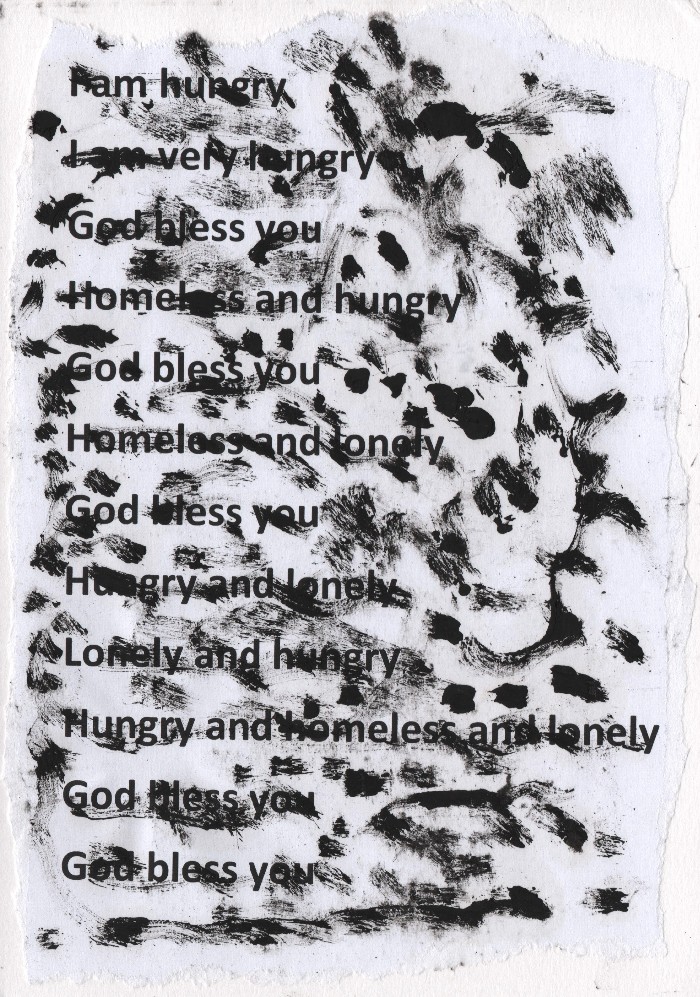 I am hungry
I am very hungry
God bless you
Homeless and hungry
God bless you
Homeless and lonely
God bless you
Hungry and lonely
Lonely and hungry
Hungry and homeless and lonely
God bless you
God bless you